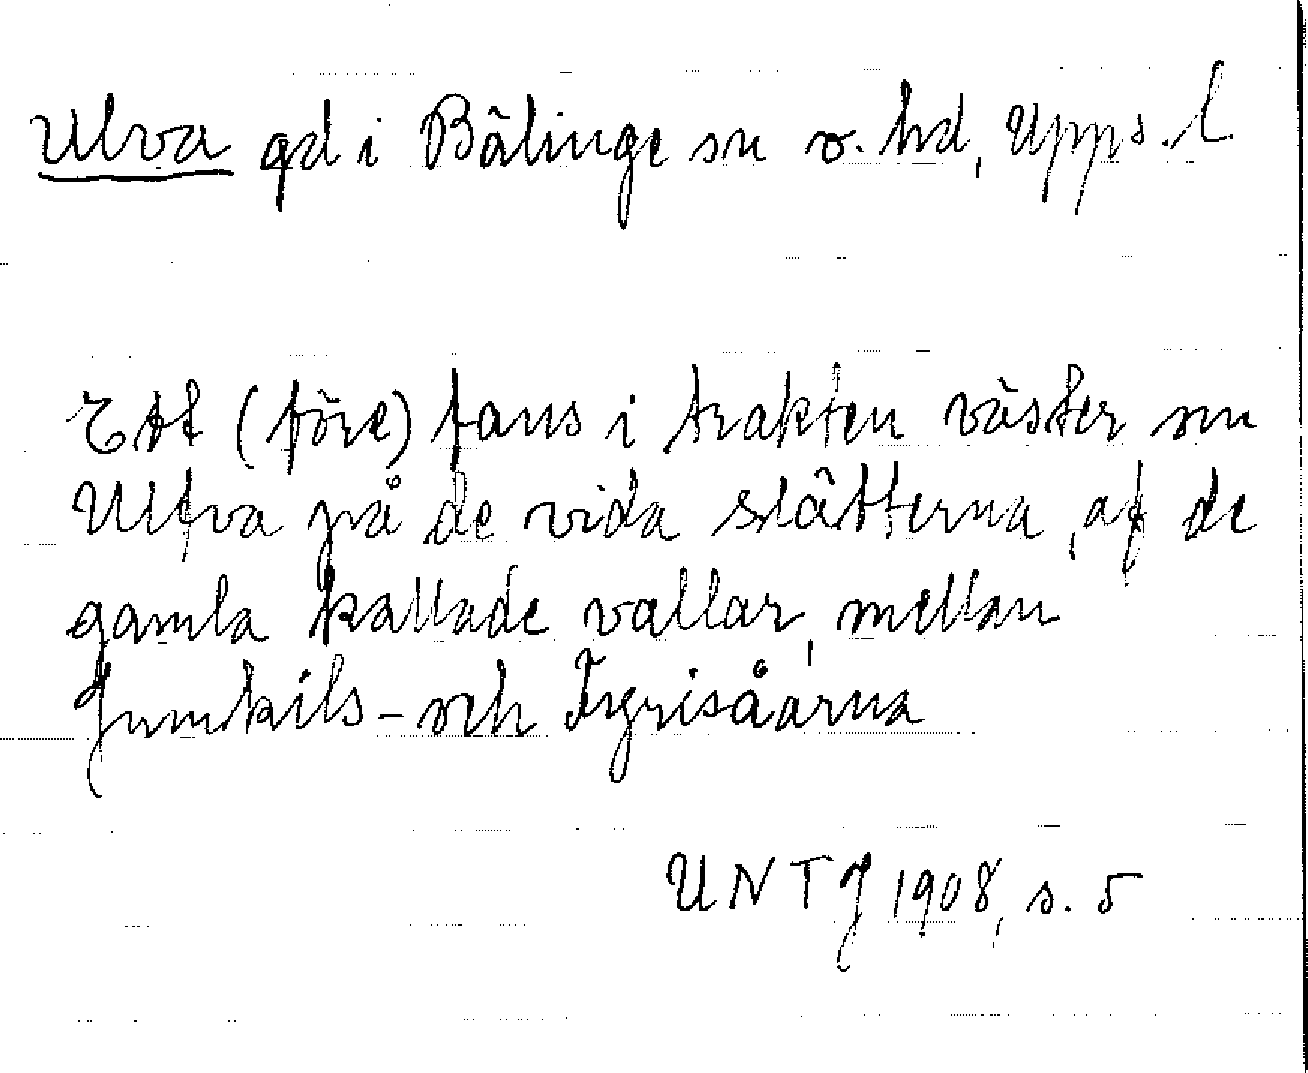 Ulva gd i Bälinge sn o. hd, Upps. l
Ett (före) fans i trakten väster om
Ulfva på de vida slätterna, af de
gamla kallade vallar, mellan
Jumkils- och Fyrisåarna
UNTJ 1908, s. 5